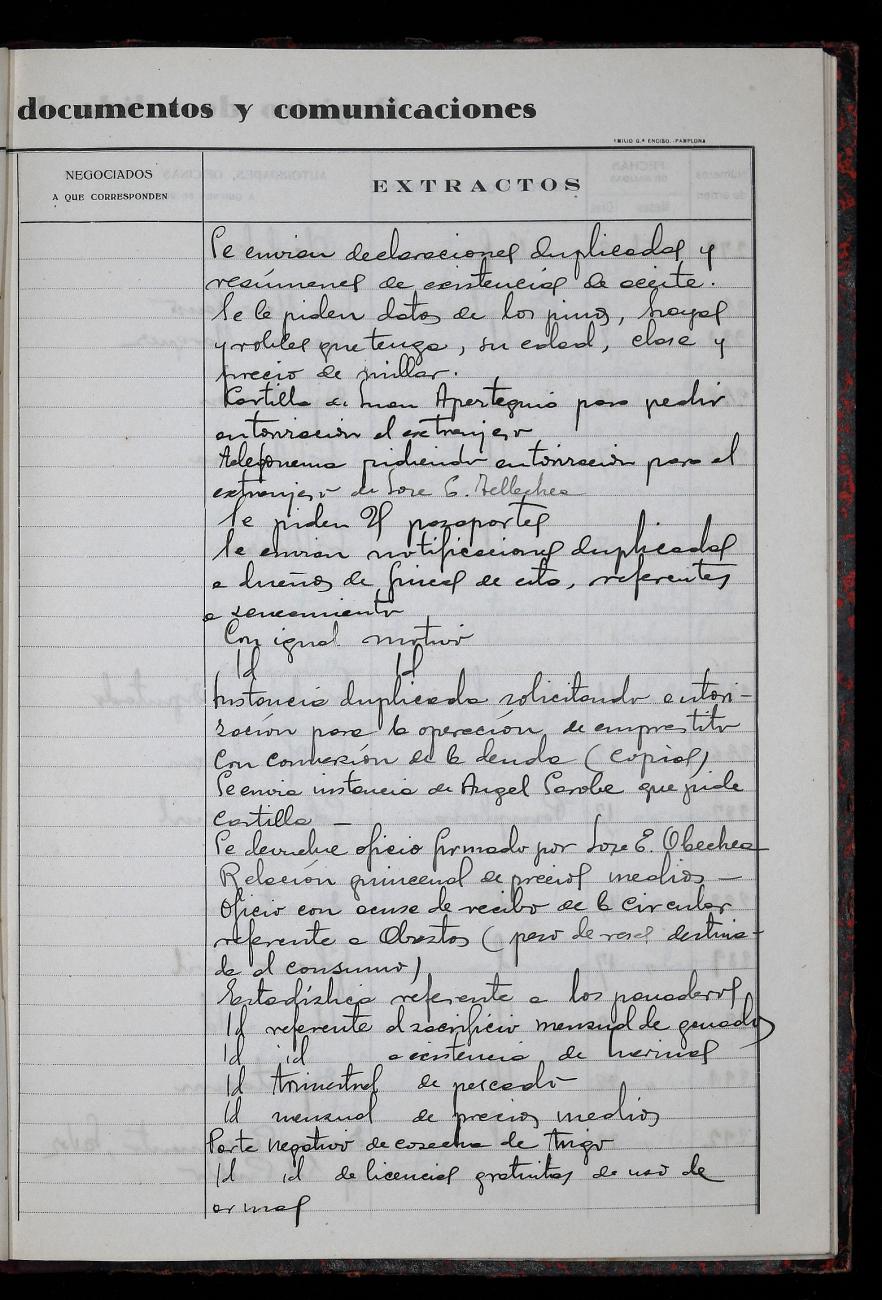 documentos y comunicaciones
EMILIO G.ª ENCISO.-PAMPLONA
NEGOCIADOS
A QUE CORRESPONDEN
EXTRACTOS
Se envian declaraciones duplicadas y
resúmenes de existencias de aceite.
Se le piden datos de los pinos, hayas
y robles que tenga, su edad, clase y
precio de millar.
Cartilla de Juan Aperteguia para pedir
autorización al extranjero
Telefonema pidiendo autorización para el
extranjero de Jose C. Tellechea
Se piden 25 pasaportes
Se envian notificaciones duplicadas
a dueños de fincas de esta, referentes
a saneamiento
Con igual motivo
Id Id
Instancia duplicada solicitando autori-
zación para la operación de emprestito
con conversión de la deuda (copias)
Se envia instancia de Angel Sarobe que pide
cartilla —
Se devuelve oficio firmado por Jose E. Obechea
Relación quincenal de precios medios —
Oficio con acuse de recibo de la Circular
referente a Abastos (peso de reses destina-
da al consumo)
Estadística referente a los panaderos
Id referente al sacrificio mensual de ganado
Id id a existencia de harinas
Id trimestral de pescado
Id mensual de precios medios
Parte negativo de cosecha de trigo
Id id de licencias gratuitas de uso de
armas